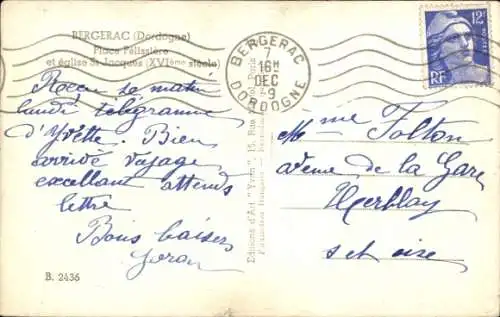 BERGERAC (Dordogne)
Place Pélissière
et église St-Jacques (XVIème siècle)
Reçu ce matin
lundi télégramme
d'Yvette. Bien
arrivé voyage
excellent attends
lettre
Bons baisers
B. 2436
Editions d'Art "Yvon", 15, Rue
BERGERAC
7
16H
DEC
9
DORDOGNE
12F
RF
Mme Folton
avenue de la Gare
Herblay
s et oise